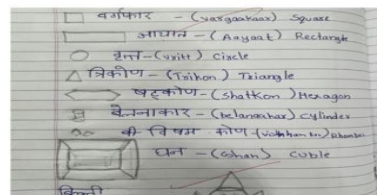 वर्गाकार - (vargaakaar) Square
आयात - (Aayaat) Rectangle
वृत्त - (vritt) Circle
त्रिकोण - (Trikon) Triangle
षट्कोण - (Shatkon) Hexagon
बेलनाकार - (belanakar) Cylinder
विषम कोण
घन - (Ghan) Cuble